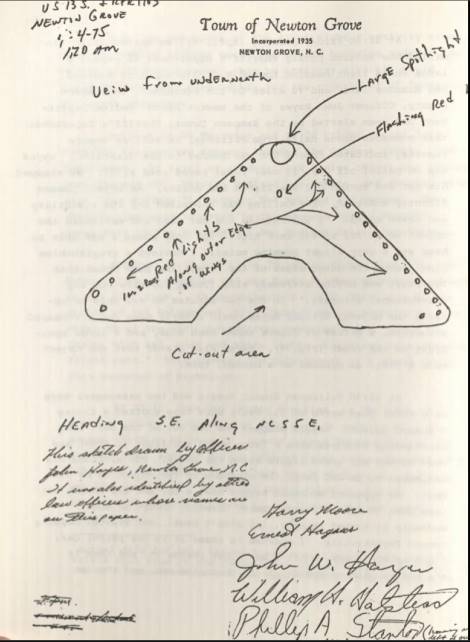 US 13 S.
NEWTON GROVE
4-75
120 AM
Town of Newton Grove
Incorporated 1935
NEWTON GROVE, N. C.
Veiw From UNDERNEATH
LARGE Spitlight
Flashing Red
Red Lights
Along outer Edge
of Wings
Cut-out area
HEADING S.E. Along NC 55 E.
This sketch drawn by officer
John Hayes, Newton Grove, N.C
It was also identified by other
law officers whose names are
on this paper.
Harry Moore
Ernest Hagans
John W. Hayes
William H.
Phillip A. Stanton